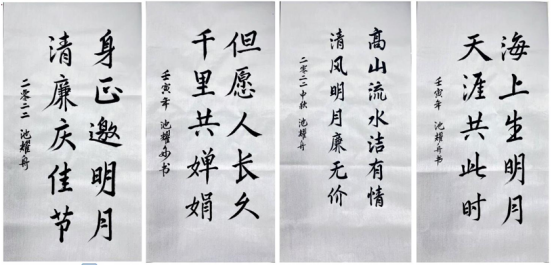 身正邀明月
清廉庆佳节
二零二二 池耀舟
但愿人长久
千里共婵娟
壬寅年 池耀舟书
高山流水洁有情
清风明月廉无价
二零二二中秋 池耀舟
海上生明月
天涯共此时
壬寅年 池耀舟书